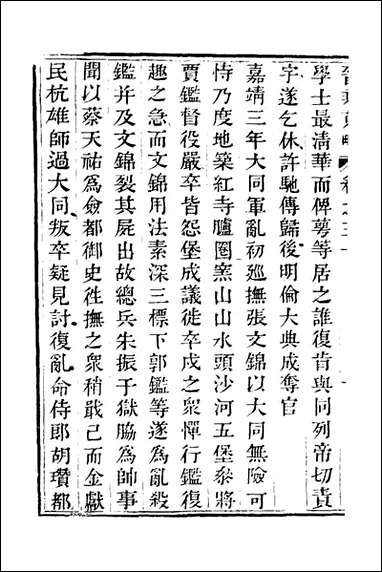 晉乘蒐略　卷之三十
學士最清華而俾萼等居之誰復肯與同列帝切責
宇遂乞休許馳傳歸後明倫大典成奪官
嘉靖三年大同軍亂初巡撫張文錦以大同無險可
恃乃度地築紅寺臚圈窯山山水頭沙河五堡叅將
賈鑑督役嚴卒皆怨堡成議徙卒戍之衆憚行鑑復
趣之急而文錦用法素深三標下郭鑑等遂為亂殺
鑑并及文錦裂其屍出故總兵朱振于獄脇為帥事
聞以蔡天祐為僉都御史徃撫之衆稍戢已而金獻
民杭雄師過大同叛卒疑見討復亂命侍郎胡瓚都